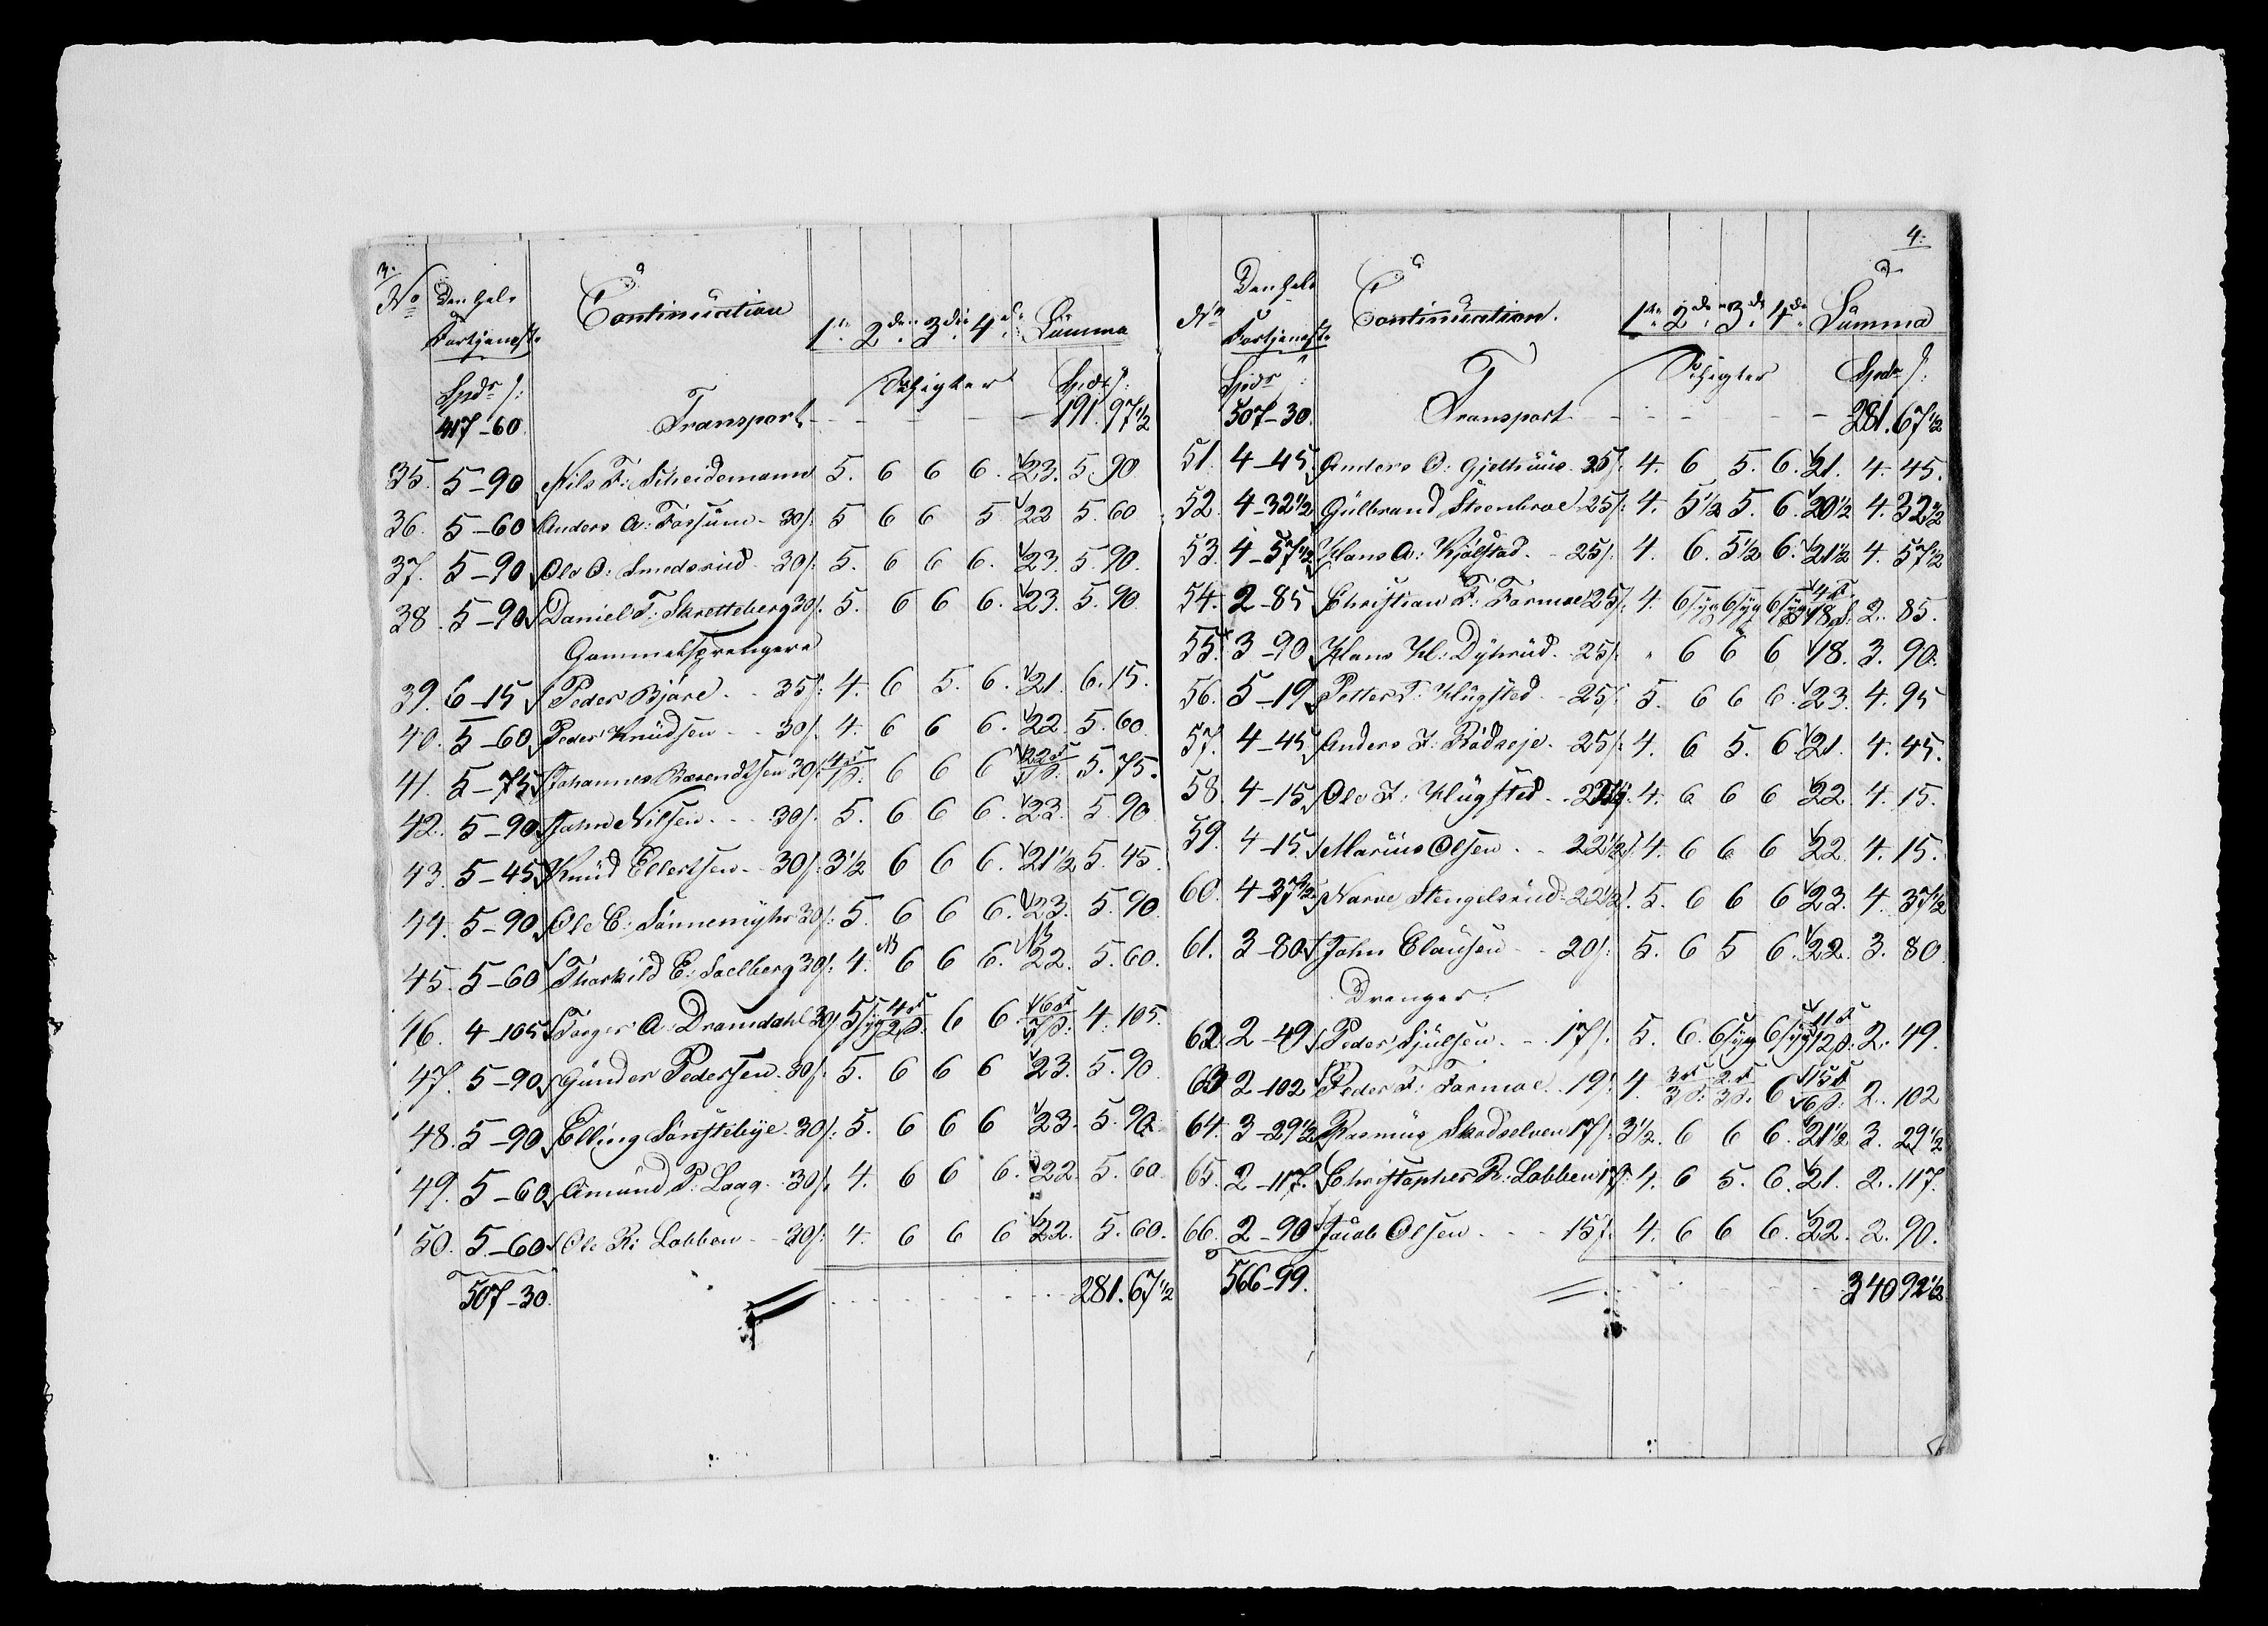 3.
No Den hele Fortjeneste Continuation 1ste 2den 3die 4de Summa
Spdr s: Schigter Spdr s:
417-60 Transport - - - - 191. 97 1/2
35. 5-90 Nils F: Scheidemann 5. 6 6 6. 23. 5. 90
36. 5-60 Anders A: Fossum - 30s: 5 6 6 5 22 5. 60
37. 5-90 Ole O: Smedsrud - 30s: 5. 6 6 6. 23. 5. 90.
38. 5-90 Daniel T: Skretteberg 30s: 5. 6 6 6. 23. 5. 90
Gammelsprengere
39. 6-15 Peder Bjøre - - 35s: 4. 6 5. 6. 21. 6. 15.
40. 5-60 Peder Knudsen - - 30s: 4. 6 6 6. 22. 5. 60
41. 5-75 Johannes Barendtsen 30s: 6 6 6 5. 75.
42. 5-90 John Nilsen - - - 30s: 5. 6 6 6. 23. 5. 90
43. 5-45 Knud Ellertsen - - 30s: 3 1/2 6 6 6. 21 1/2 5. 45
44. 5-90 Ole E: Sønnemyhr 30s: 5 6 6 6. 23. 5. 90
45. 5-60 Tharkild E: Saelberg 30s: 4. 6 6 6. 22. 5. 60.
46. 4-105 Torger A: Dramdahl 30s: 5 syg 6 6. 4. 105.
47. 5-90 Gunder Pedersen - 30s: 5. 6 6 6 23. 5. 90
48. 5-90 Elling Sønstebye - 30s: 5. 6 6 6 23. 5. 90.
49. 5-60 Amund P: Laag - 30s: 4. 6 6 6. 22. 5. 60
50. 5-60 Ole R: Lobben - - 30s: 4. 6 6 6 22. 5. 60.
507-30. - - - - 281. 67 1/2
4.
No Den hele Fortjeneste Continuation. 1ste 2den 3de 4de Summa
Spdr : Schigter Spdr s:
507-30. Transport - - - - 281. 67 1/2
51. 4-45 Anders O: Gjelhuus - 25s: 4. 6 5. 6. 21. 4. 45.
52. 4-32 1/2 Gulbrand Steenbroe 25s: 4. 5 1/2 5. 6. 20 1/2 4. 32 1/2
53. 4-57 1/2 Hans A: Kjølstad - - 25s: 4. 6. 5 1/2 6. 21 1/2 4. 57 1/2
54. 2-85 Christian F: Formoe 25s: 4. 6 syg 6 syg 6 syg 2. 85.
55. 3-90 Hans Hl: Dyhrud - 25s: " 6 6 6 18. 3. 90.
56. 5-19 Petter T: Hugsted - - 25s: 5. 6 6 6. 23. 4. 95
57. 4-45 Anders J: Rødseje - 25s: 4. 6 5. 6 21. 4. 45.
58. 4-15 Ole J: Hugsted - - 4. 6 6 6 22. 4. 15.
59. 4-15 Marius Olsen - - 22 1/2s: 4. 6 6 6 22. 4. 15.
60. 4-37 1/2 Narve Stengelsrud - 22 1/2s: 5. 6 6 6 23. 4. 37 1/2
61. 3-80 John Clausen - - 20s: 5. 6 5 6. 22. 3. 80
Drenger.
62. 2-49 Peder Sjulsen - - 17s: 5. 6. 6 syg 6 syg 2. 49.
63 2-102 Peder F: Formoe - 19s: 4. 6 2. 102
64. 3-29 1/2 Rasmus Skodselven 17s: 3 1/2. 6 6 6. 21 1/2 3. 29 1/2
65. 2-117. Christopher R: Lobben 17s: 4. 6 5. 6. 21. 2. 117.
66. 2-90 Jacob Olsen - - - 15s. 4. 6 6 6. 22. 2. 90.
566-99. - - - - 340 92 1/2